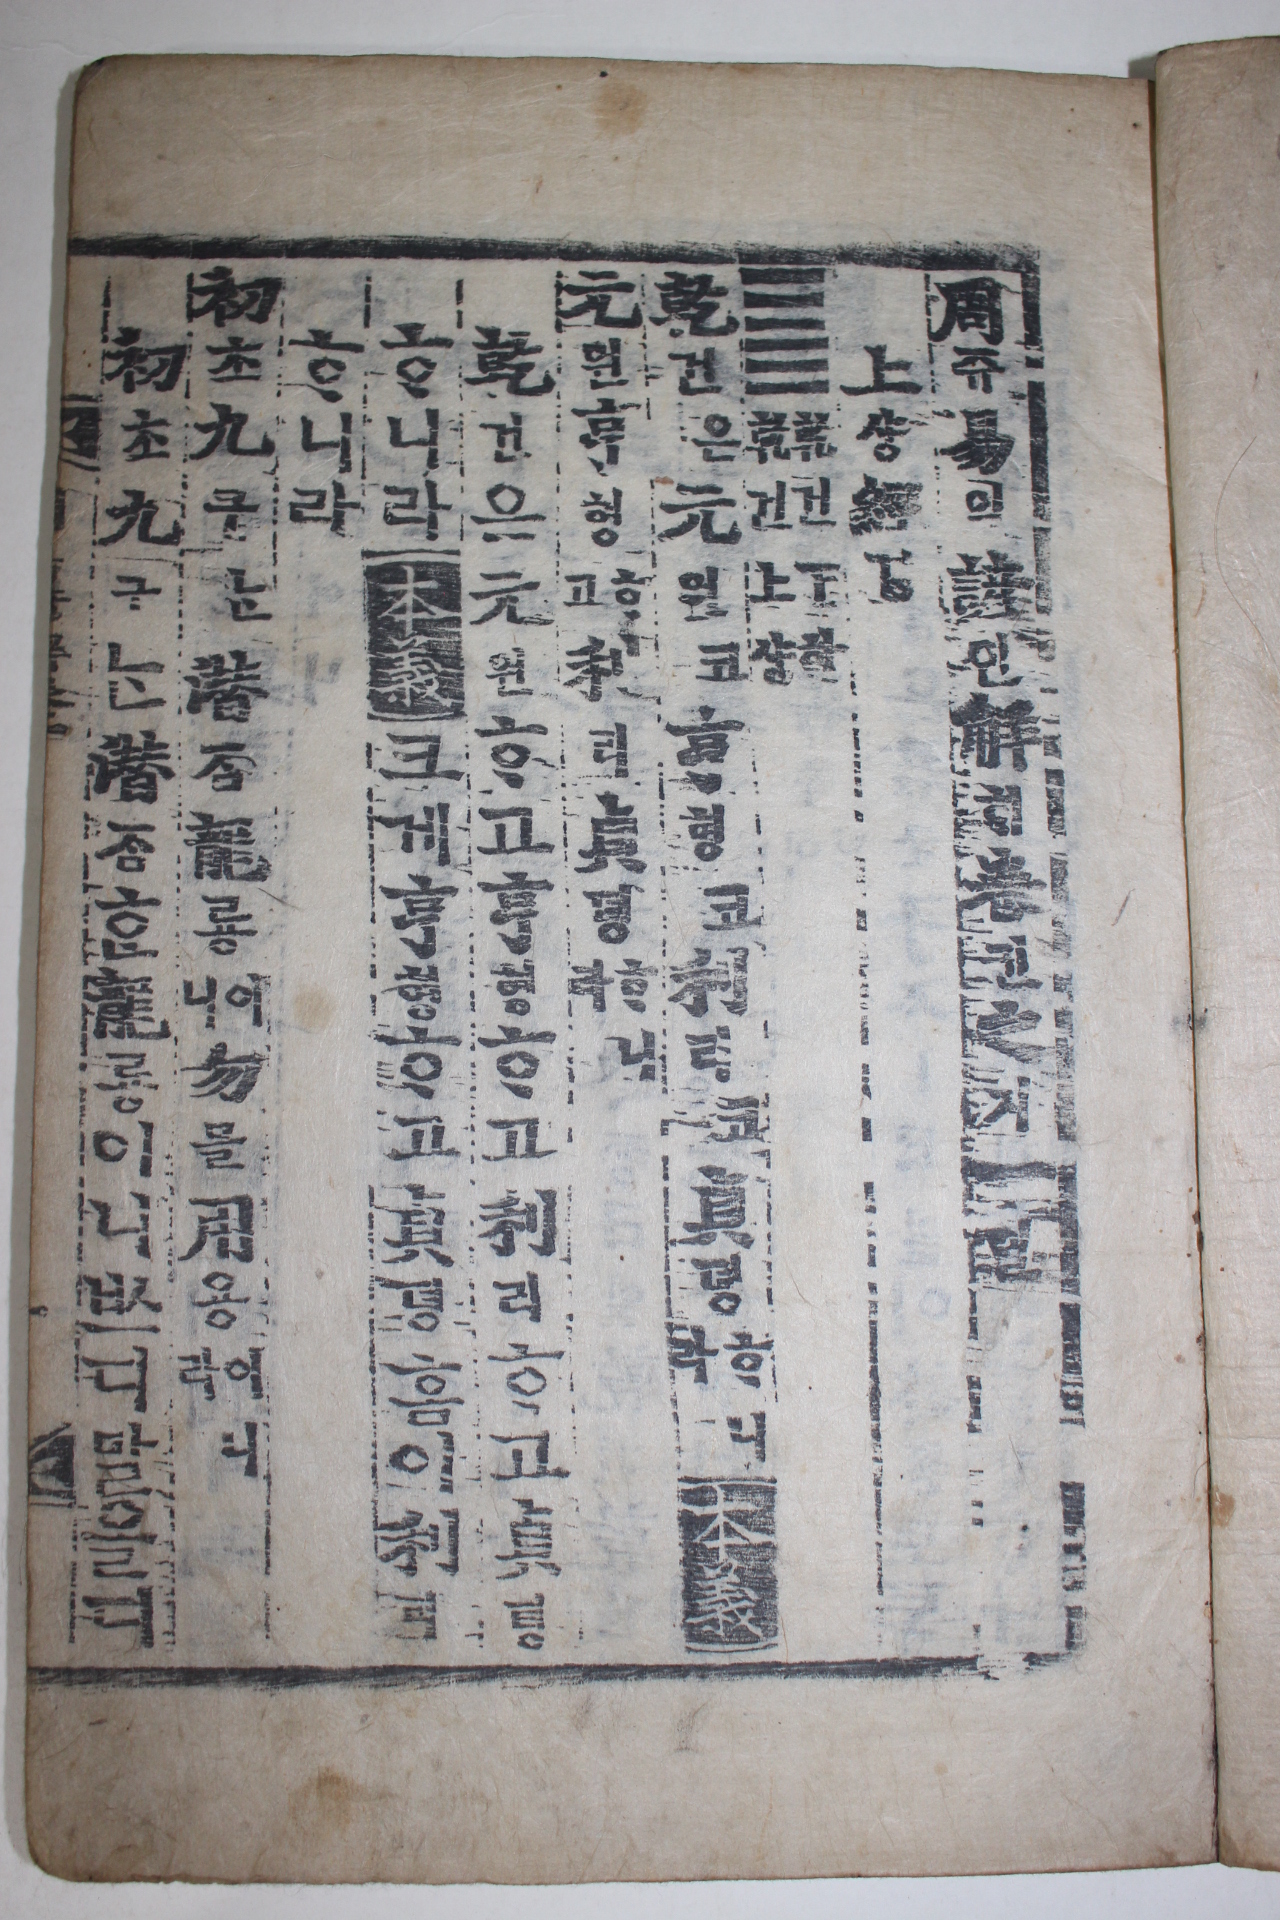 周쥬易역諺언解ᄒᆡ卷권之지一일
上샹經경
乾건下하乾건上샹
乾건은元원코亨형코利리코貞뎡ᄒᆞ니라本義
元원亨형ᄒᆞ고利리貞뎡ᄒᆞ니라
乾건은元원ᄒᆞ고亨형ᄒᆞ고利리ᄒᆞ고貞뎡
ᄒᆞ니라本義크게亨형ᄒᆞ고貞뎡홈이利리
ᄒᆞ니라
初초九구는潛ᄌᆞᆷ龍룡이니勿믈用용이니라
初초九구는潛ᄌᆞᆷᄒᆞᆫ龍룡이니ᄡᅳ디